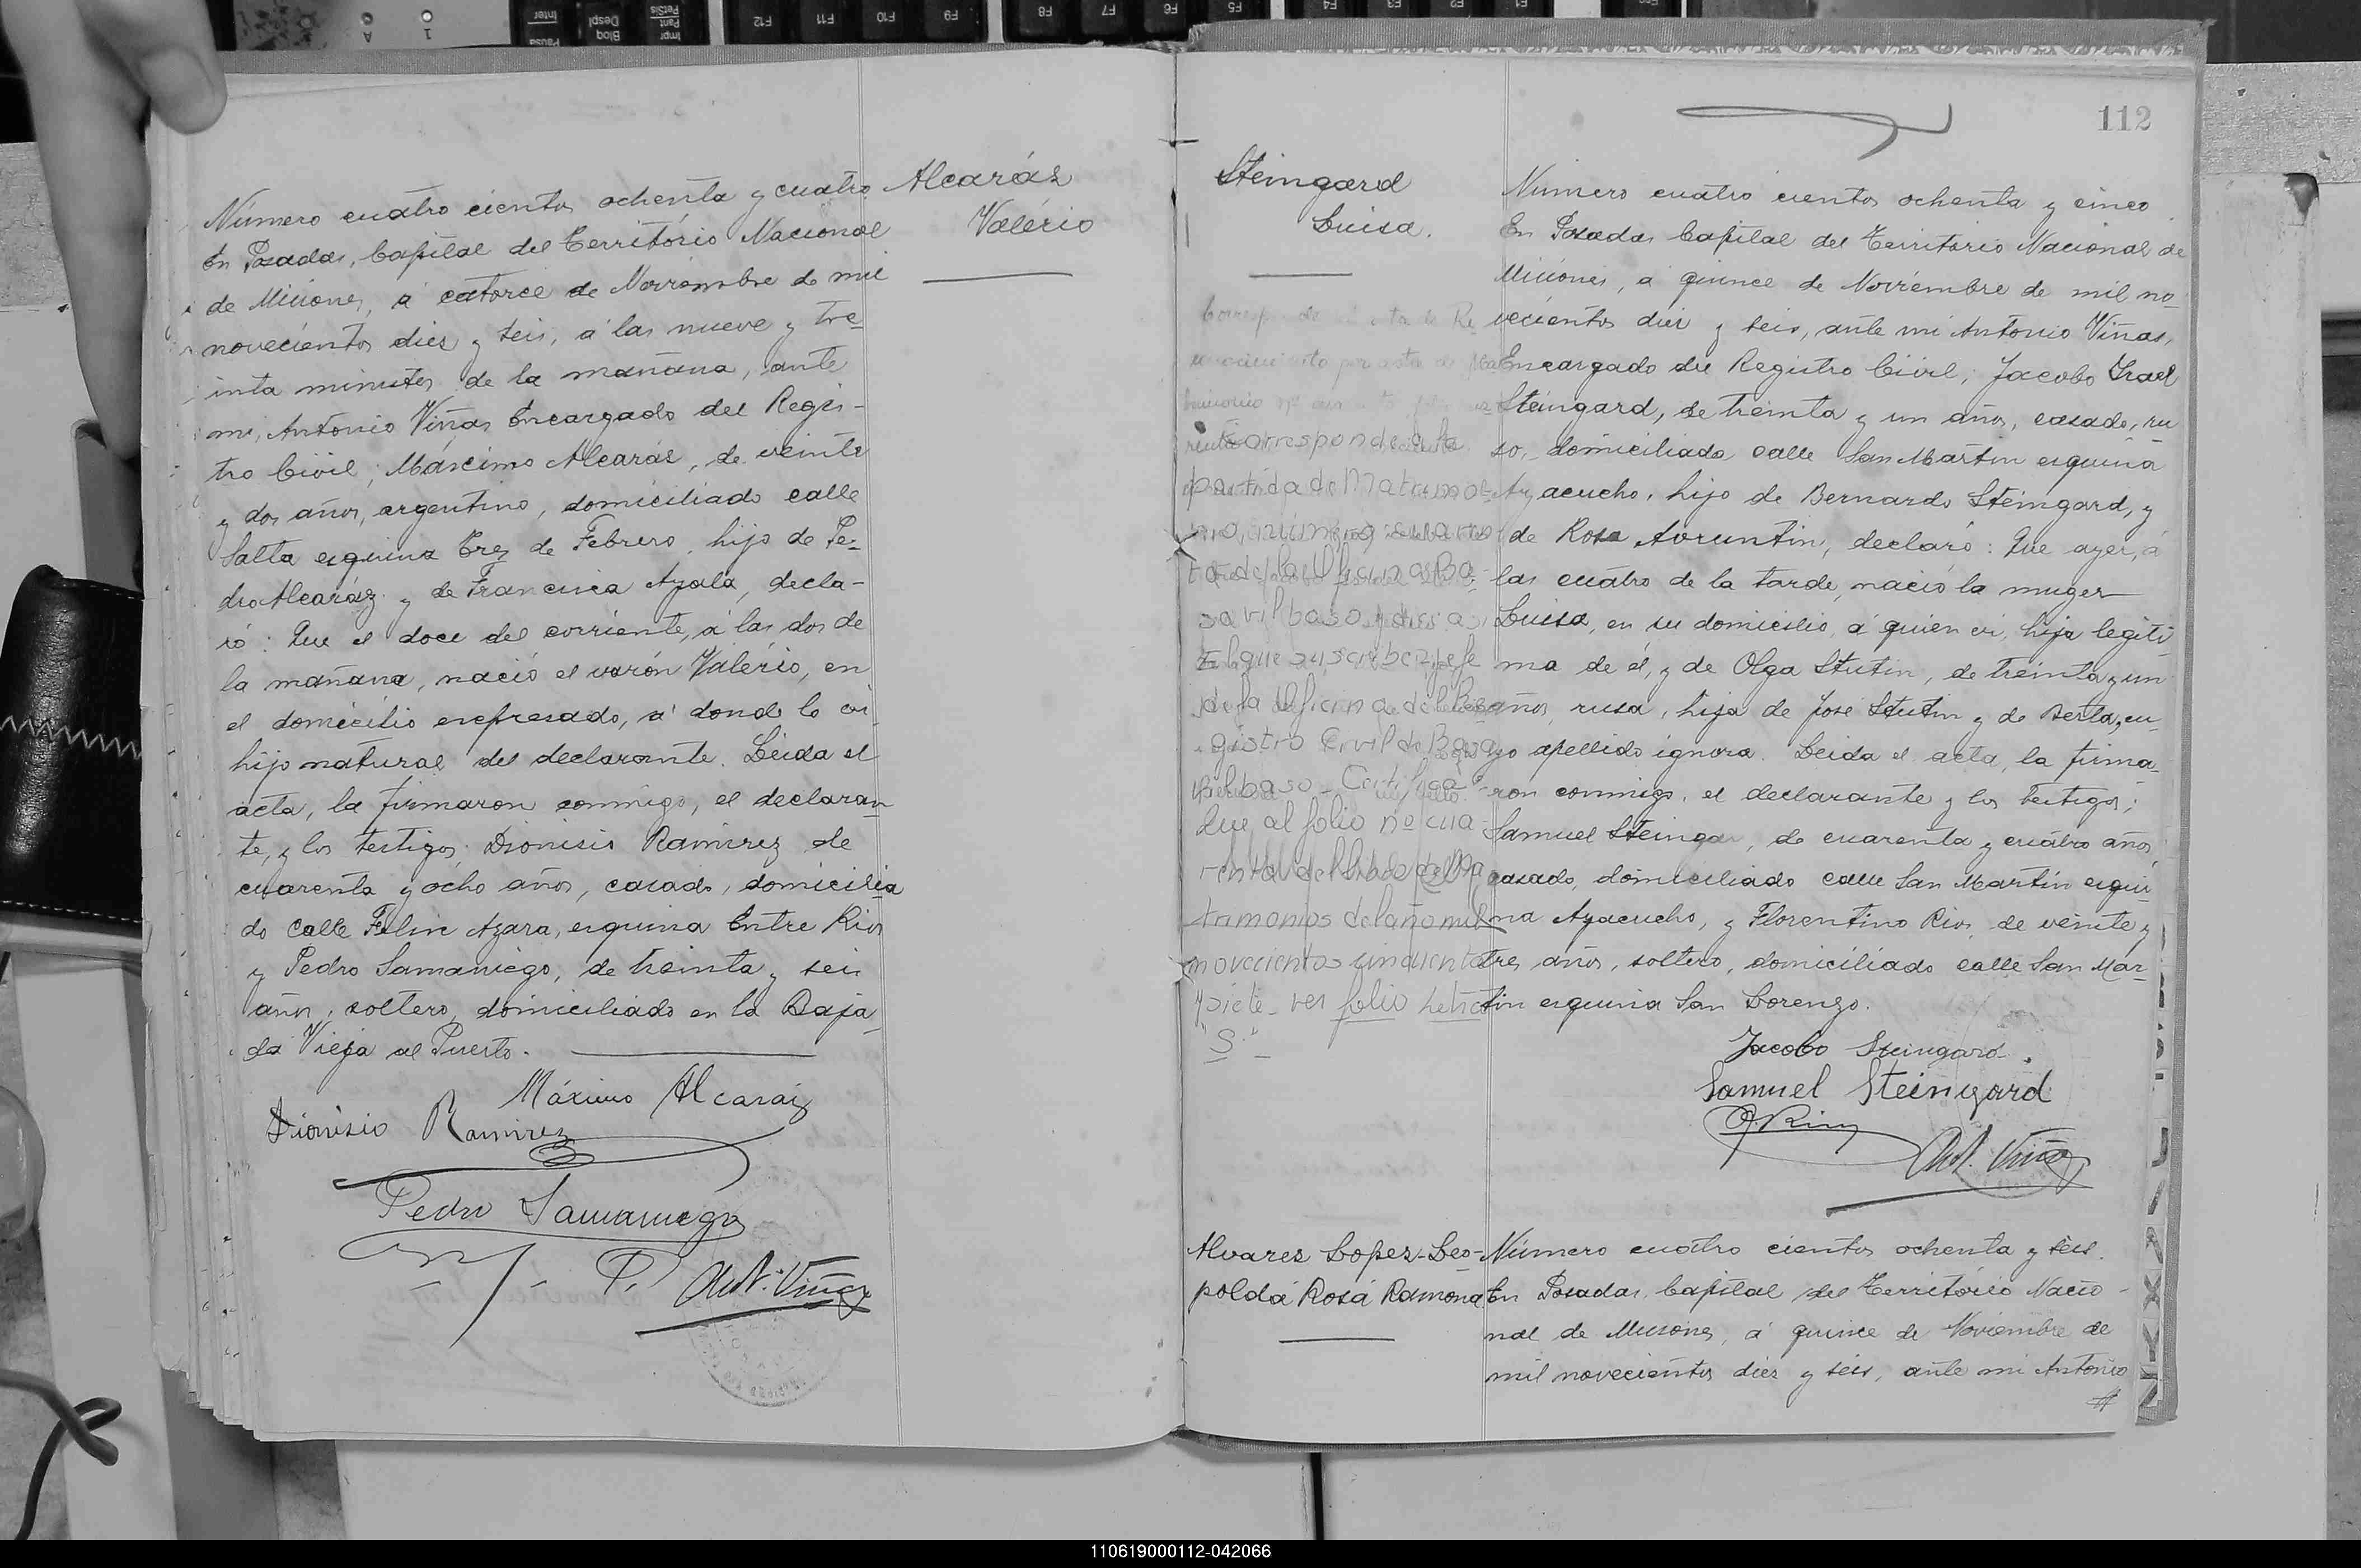 Número cuatro cientos ochenta y cuatro
En Posadas, Capital del Território Nacional
de Misiones, á catorce de Noviembre de mil
novecientos diez y seis, á las nueve y tre-
inta minutos de la mañana, ante
mi, Antonio Viñas Encargado del Regis-
tro Civil; Máximo Alcarás, de veinte
y dos años, argentino, domiciliado calle
Salta esquina Tres de Febrero, hijo de Pe-
dro Alcaráz y de Francisca Ayala, decla-
ró: Que el doce del corriente, á las dos de
la mañana, nació el varón Valério, en
el domicilio expresado, á donde lo vi,
hijo natural del declarante. Leida el
acta, la firmaron conmigo, el declaran-
te, y los testigos: Dionisio Ramirez de
cuarenta y ocho años, casado, domicilia
do Calle Felix Azara, esquina Entre Rios
y Pedro Samaniego, de treinta y seis
años, soltero, domiciliado en la Baja-
da Vieja al Puerto.
Máximo Alcaraz
Dionisio Ramirez
Pedro Samaniego
Ant. Viñas
Alcarás
Valério
112
Steingard
Luisa.
Corresponde a la
partida de Matrimo-
nio, número
ta de la Oficina Ba-
savilbaso y dice así
El que suscribe, jefe
de la Oficina del Re-
gistro Civil de Basa-
vilbaso - Certifica
Que al folio nº cua-
renta del libro de Ma
trimonios del año mil
novecientos cincuenta
y siete - ver folio letra
"S" -
Número cuatro cientos ochenta y cinco
En Posadas Capital del Territorio Nacional de
Misiones, á quince de Noviembre de mil no-
vecientos diez y seis, ante mi Antonio Viñas,
Encargado del Registro Civil, Jacobo Israel
Steingard, de treinta y un años, casado, ru-
so, domiciliado calle San Martin esquina
Ayacucho, hijo de Bernardo Steingard, y
de Rosa Avruntin, declaró: Que ayer, á
las cuatro de la tarde, nació la muger
Luisa, en su domicilio, á quien vi, hija legiti-
ma de él, y de Olga Stutin, de treinta y un
años, rusa, hija de José Stutin y de Berta, cu-
yo apellido ignora. Leida el acta, la firma-
ron conmigo, el declarante y los testigos;
Samuel Steingar, de cuarenta y cuatro años
casado, domiciliado calle San Martin esqui-
na Ayacucho, y Florentino Rios, de veinte y
tres años, soltero, domiciliado calle San Mar-
tin esquina San Lorenzo.
Jacobo Steingard.
Samuel Steingard
Ant. Viñas
Alvares Lopez-Leo-
polda Rosa Ramona
Número cuatro cientos ochenta y seis.
En Posadas, Capital del Território Nacio-
nal de Misiones, á quince de Noviembre de
mil novecientos diez y seis, ante mi Antonio
110619000112-042066